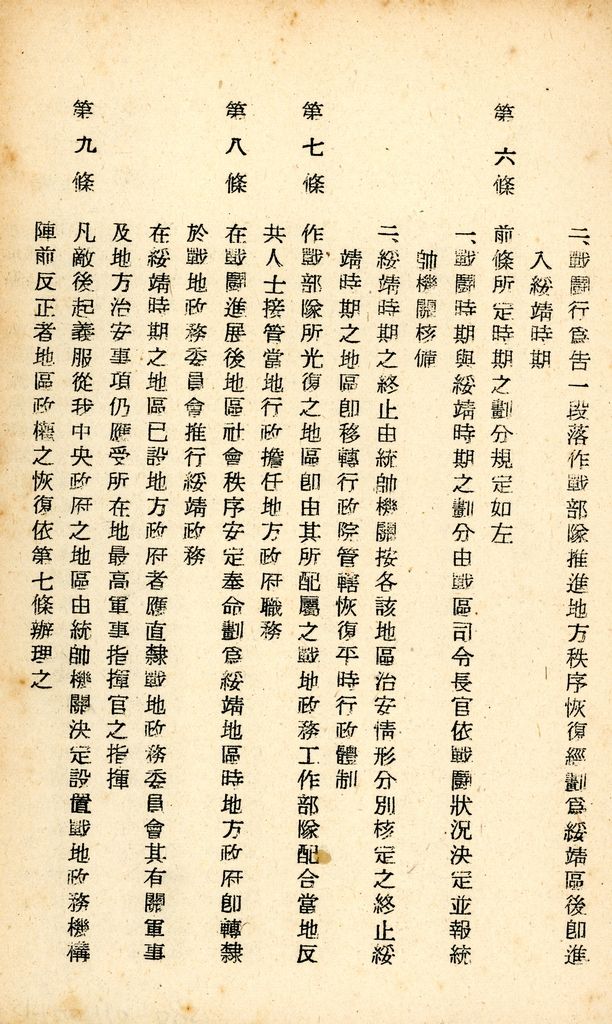 二、戰鬪行爲告一段落作戰部隊推進地方秩序恢復經劃爲綏靖區後卽進
入綏靖時期
第六條 前條所定時期之劃分規定如左
一、戰鬪時期與綏靖時期之劃分由戰區司令長官依戰鬪狀況決定並報統
帥機關核備
二、綏靖時期之終止由統帥機關按各該地區治安情形分別核定之終止綏
靖時期之地區卽移轉行政院管轄恢復平時行政體制
第七條 作戰部隊所光復之地區卽由其所配屬之戰地政務工作部隊配合當地反
共人士接管當地行政擔任地方政府職務
第八條 在戰鬪進展後地區社會秩序安定奉命劃爲綏靖地區時地方政府卽轉隸
於戰地政務委員會推行綏靖政務
在綏靖時期之地區已設地方政府者應直隸戰地政務委員會其有關軍事
及地方治安事項仍應受所在地最高軍事指揮官之指揮
第九條 凡敵後起義服從我中央政府之地區由統帥機關決定設置戰地政務機構
陣前反正者地區政權之恢復依第七條辦理之